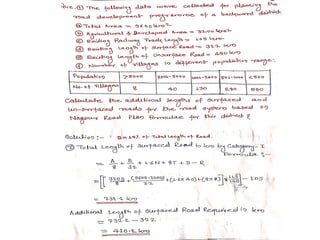 Que. ① The following data were collected for planning the
road development programme of a backward district
ⓐ Total Area = 9600 km²
ⓑ Agricultural & Developed Area = 3200 km²
ⓒ Existing Railway Track Length = 105 km
ⓓ Existing Length of Surfaced Road = 322 km
ⓔ Existing Length of Unsurfaced Road = 450 km
ⓕ Number of Villages in different population range:
Population >5000 2001-5000 1001-2000 501-1000 <500
No. of Villages 8 40 130 280 590
Calculate the additional lengths of surfaced and
un-surfaced roads for the road system based on
Nagpur Road Plan Formulae for this district?
Solution:-
① Total Length of Surfaced Road in km by Category-I
Formula:-
= A/8 + B/32 + 1.6N + 8T + D - R
- 105
= 739.2 km
Additional Length of Surfaced Road Required in km